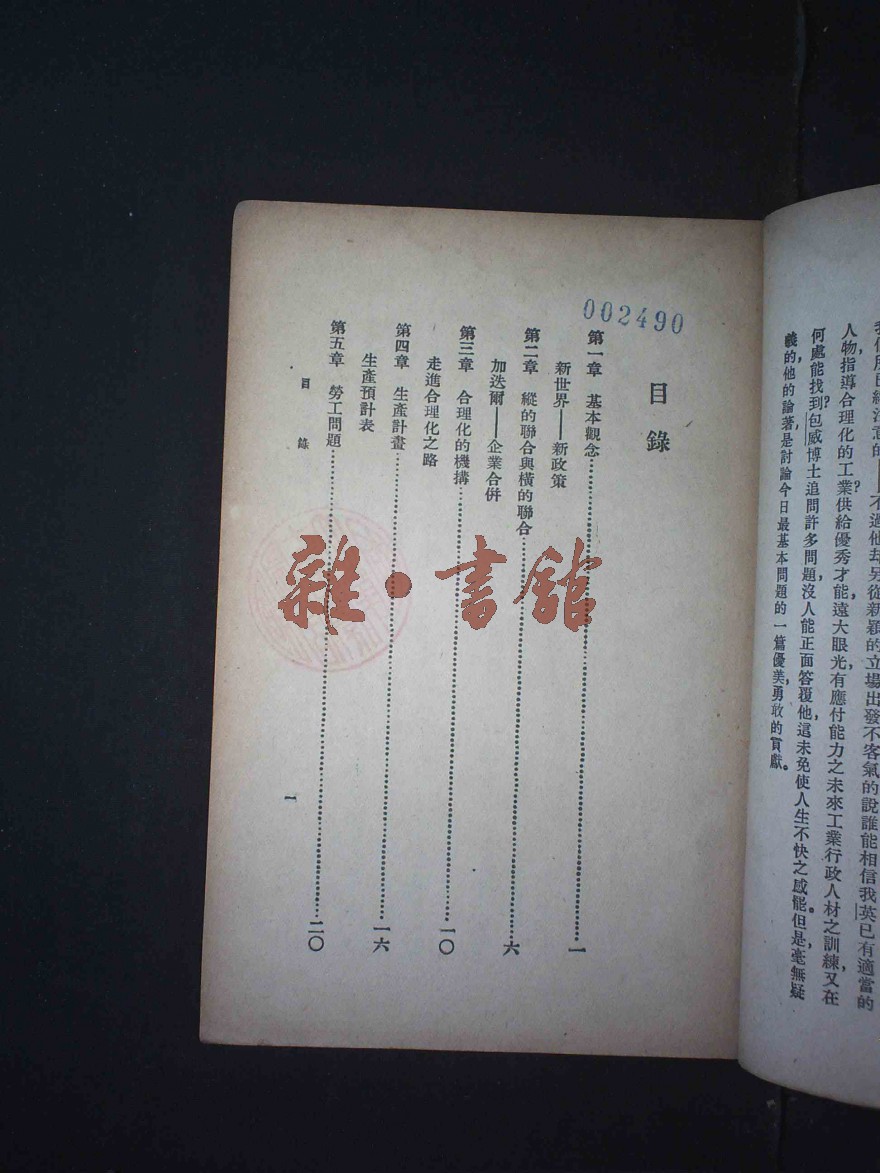 我們所已經注意的
不過他却另從新穎的立場出發不客氣的說誰能相信我英已有適當的
人物，指導合理化的工業供給優秀才能，遠大眼光有應付能力之未來工業行政人材之訓練，又在
何處能找到？包威博士追問許多問題，沒人能正面答覆他，這未免使人生不快之感罷。但是，毫無疑
義的，他的論著，是討論今日最基本問題的一篇優美，勇敢的貢獻。
002490
目錄
第一章　基本觀念…………一
新世界——新政策
第二章　縱的聯合與橫的聯合…………六
加迭爾——企業合併
第三章　合理化的機構…………一〇
走進合理化之路
第四章　生產計畫…………一六
生產預計表
第五章　勞工問題…………二〇
目錄
一
雜·書館